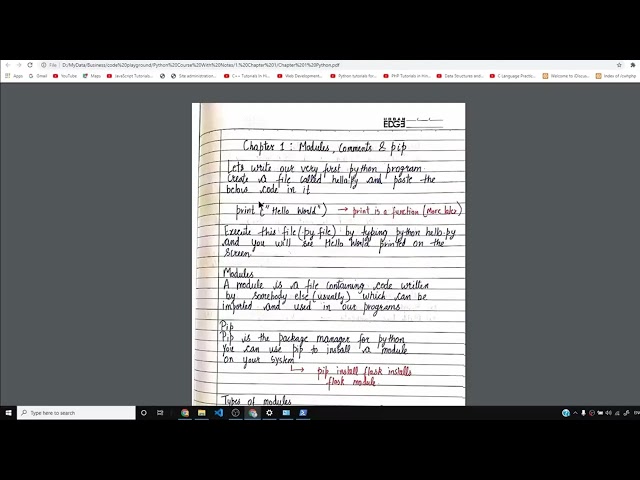 File
D:/MyData/Business/code%20playground/Python%20Course%20With%20Notes/1.%20Chapter%201/Chapter%201%20Python.pdf
Apps Gmail YouTube Maps JavaScript Tutorials... Site administration... C++ Tutorials In Hi... Web Development... Python Tutorials for... PHP Tutorials in Hi... Data Structures and... C Language Practic... Welcome to
EDGE
Chapter 1 : Modules, Comments & pip
Lets write our very first python program
Create a file called hello.py and paste the
below code in it
print ("Hello World") → print is a function (More later)
Execute this file (.py file) by typing python hello.py
and you will see Hello World printed on the
screen
Modules
A module is a file containing code written
by somebody else (usually) which can be
imported and used in our programs
Pip
Pip is the package manager for python
You can use pip to install a module
on your system
→ pip install flask installs
flask module.
Types of modules
Type here to search